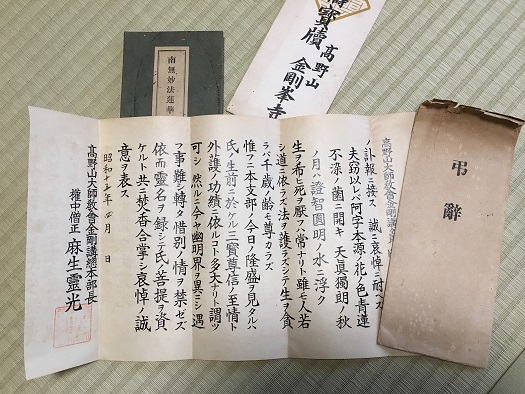 寶牘
高野山
金剛峯寺
南無妙法蓮華
弔辭
高野山大師教會金剛講
ノ訃報ニ接ス 誠ニ哀悼ニ耐ヘズ
夫竊以レバ阿字本源ノ花ノ色青蓮
不染ノ菌ニ開キ 天眞獨朗ノ秋
ノ月ハ證智圓明ノ水ニ浮ク
生ヲ希ヒ死ヲ厭フハ常ナリト雖モ人若
シ道ニ依ラズ法ヲ護ラズシテ生ヲ貪
ラバ千歳ノ齢モ尊カラズ
惟フニ本支部ノ今日ノ隆盛ヲ見タルハ
氏ノ生前ニ於ケル三寶尊信ノ至情ト
外護ノ功績ニ依ルコト多大ナリト謂ツ
可シ 然ルニ今ヤ幽明界ヲ異ニシ遇
フ事難シ轉タ惜別ノ情ヲ禁ゼズ
依而靈名ヲ録シテ氏ノ菩提ヲ資
ケルト共ニ焚香合掌シ哀悼ノ誠
意ヲ表ス
昭和十 年 月 日
高野山大師教會金剛講總本部長
權中僧正 麻生靈光